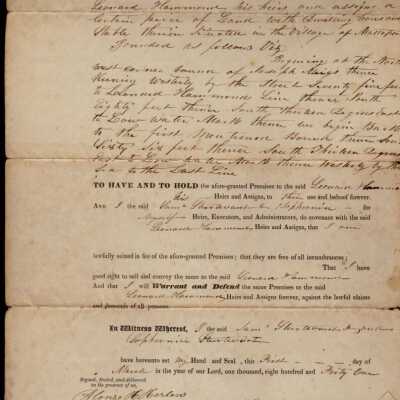 Leonard Hammond his heirs and assigns a
certain parcel of Land with Dwelling house and
Stable therein Situated in the Village of
Bounded as follows Viz
Begining at the North
west corner bound of Joseph Meigs thence
Running Westerly by the Street Seventy five feet
to Leonard Hammonds Line thence South
Eighty feet thence South thirteen Degrees East
to Low water Mark thence we begin Back
to the first Mentioned Bound thence South
Sixty Six feet thence South thirteen Degrees
East to Low water Mark thence Westerly by the
Sea to the Last Line
TO HAVE AND TO HOLD the afore-granted Premises to the said Leonard Hammond
his Heirs and Assigns, to their use and behoof forever.
And I the said for
Myself Heirs, Executors, and Administrators, do covenant with the said
Leonard Hammond Heirs and Assigns, that I am
lawfully seized in fee of the afore-granted Premises; that they are free of all incumbrances;
That I have
good right to sell and convey the same to the said Leonard Hammond
And that I will Warrant and Defend the same Premises to the said
Leonard Hammond Heirs and Assigns forever, against the lawful claims
and demands of all persons.
In Witness Whereof, I the said
have hereunto set my Hand and Seal, this First day of
March in the year of our Lord, one thousand, eight hundred and Forty One
Signed, Sealed, and delivered
in the presence of us,